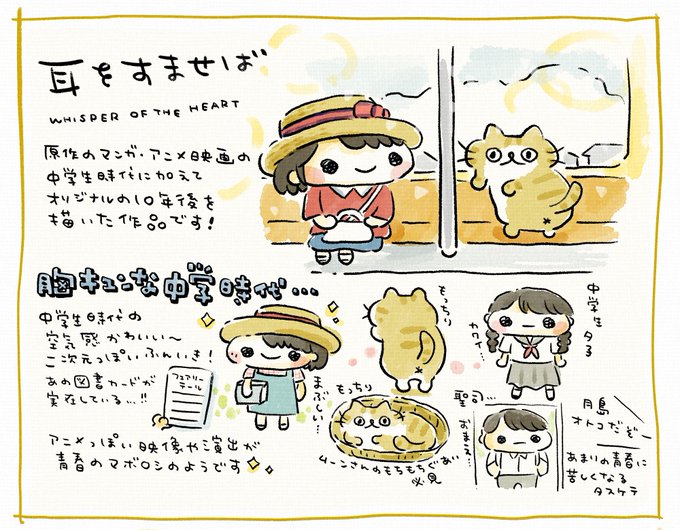 耳をすませば
WHISPER OF THE HEART
原作のマンガ・アニメ映画の
中学生時代に加えて
オリジナルの10年後を
描いた作品です!
胸キュンな中学時代...
中学生時代の
空気感かわいい〜
二次元っぽいふんいき!
あの図書カードが
実在している...!!
フェアリー
テール
アニメっぽい映像や演出が
青春のマボロシのようです
まぶしい...
もっちり
もっちり
ムーンさんのもちもちぐあい
必見
中学生
タる
カワイ...
聖司...
おまえ...
月島
オトコだぞー
あまりの青春に
苦しくなる
タスケテ